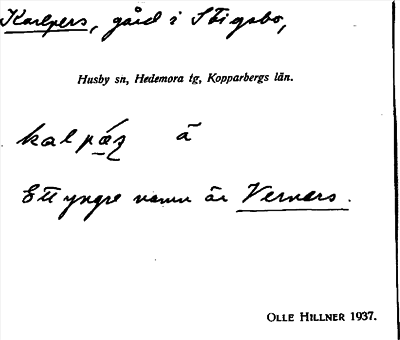 Karlpers, gård i Stigsbo,
Husby sn, Hedemora tg, Kopparbergs län.
kalpǽ̣ʒ ā
Ett yngre namn är Vernars.
OLLE HILLNER 1937.